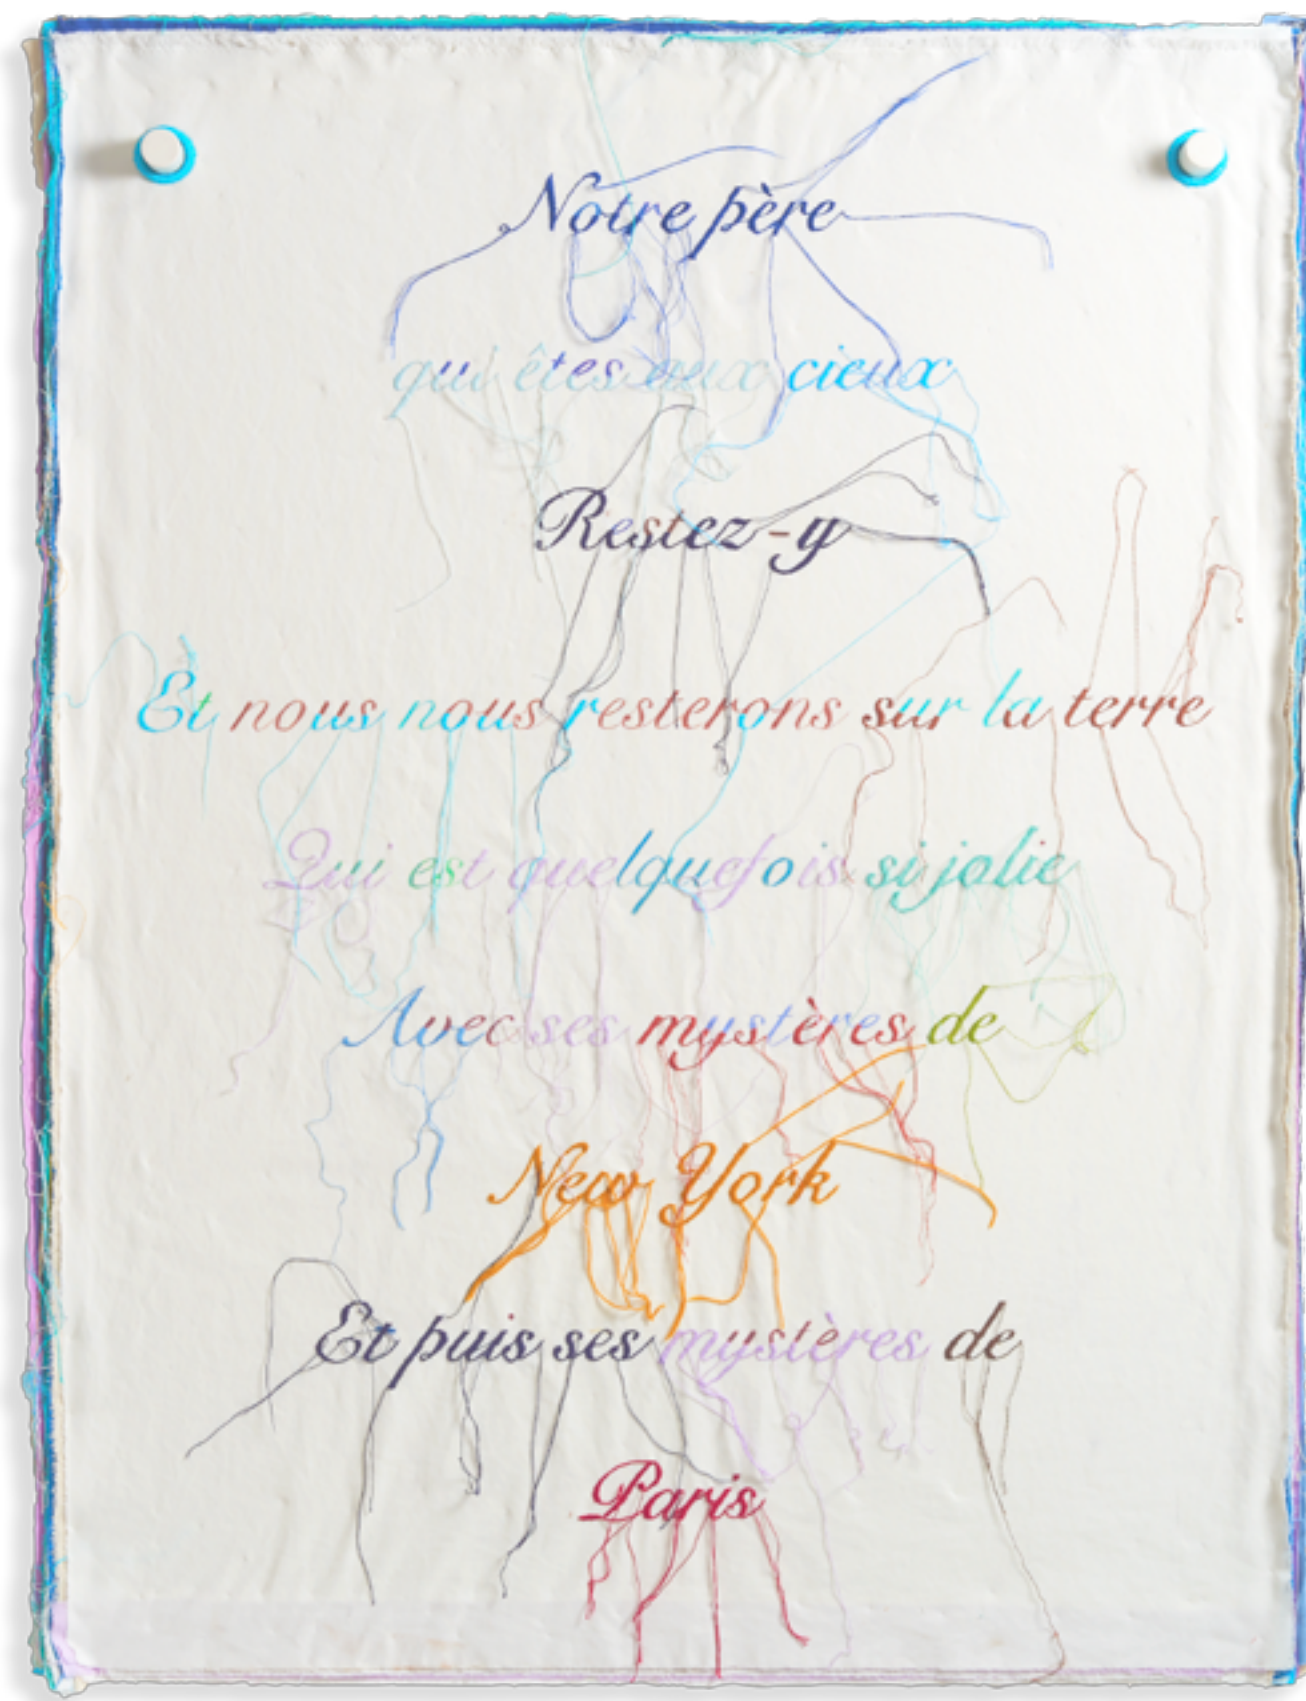 Notre père
qui êtes aux cieux
Restez-y
Et nous nous resterons sur la terre
Qui est quelquefois si jolie
Avec ses mystères de
New York
Et puis ses mystères de
Paris